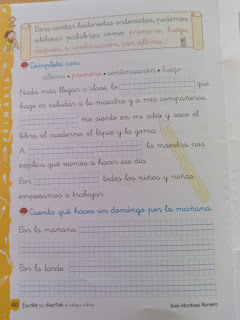 Para contar historietas ordenadas, podemos
utilizar palabras como: primero, luego,
después, a continuación, por último.
Completa con:
último • primero • continuación • luego
Nada más llegar a clase, lo que
hago es saludar a la maestra y a mis compañeros.
me siento en mi sitio y saco el
libro, el cuaderno, el lápiz y la goma.
A la maestra nos
explica qué vamos a hacer ese día.
Por todos los niños y niñas
empezamos a trabajar.
Cuenta qué haces un domingo por la mañana.
Por la mañana
Por la tarde
40 Escribir es divertido
José Martínez Romero